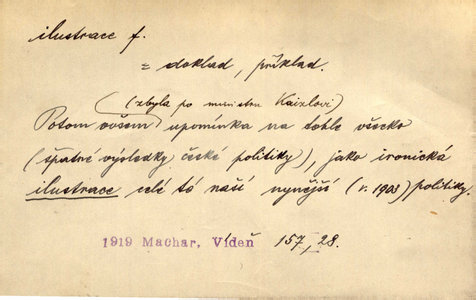 ilustrace f.
= doklad, příklad.
(zbyla po ministru Kaizlovi)
Potom ovšem upomínka na tohle všecko
(špatné výsledky české politiky), jako ironická
ilustrace celé té naší nynější (r. 1903) politiky.
1919 Machar, Vídeň 157, 28.